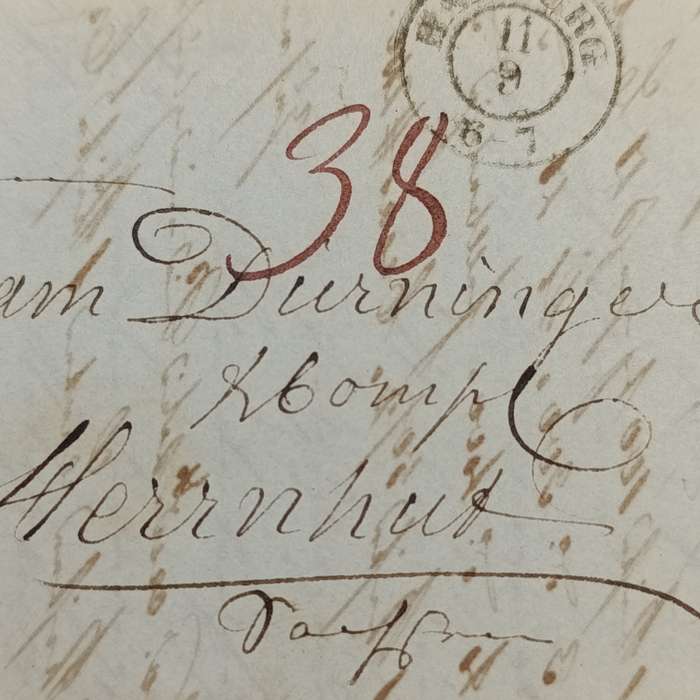 HAMBURG
11
9
6-7
38
am Dürninger
& Comp
Herrnhut
Sachsen